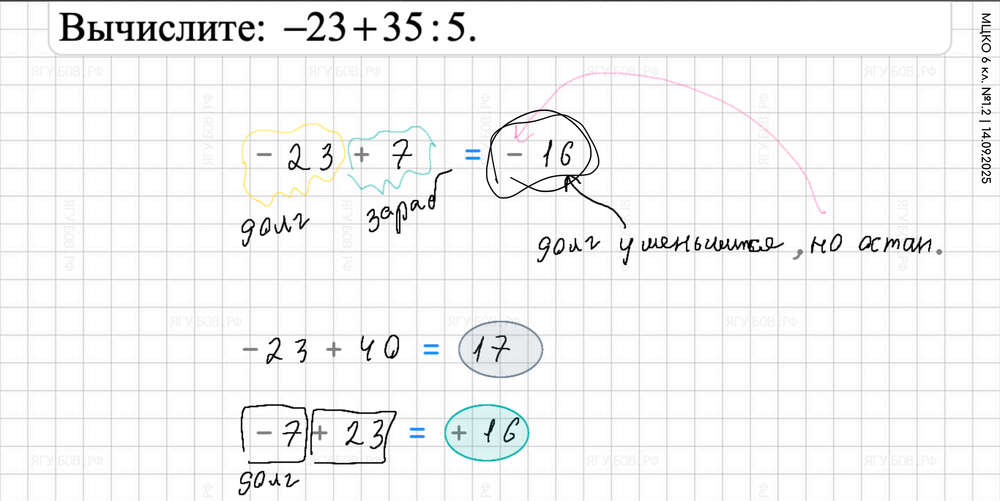 Вычислите: −23+35:5.
МЦКО 6 кл. №1.2 | 14.09.2025
ЯГУБОВ.РФ
− 23 + 7 = − 16
долг
зараб
долг уменьшится, но остан.
− 23 + 40 = 17
− 7 + 23 = + 16
долг